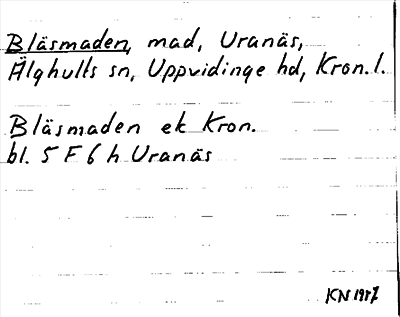 Bläsmaden, mad, Uranäs,
Älghults sn, Uppvidinge hd, Kron. l.
Bläsmaden ek Kron.
bl. 5 F 6 h Uranäs
KN 1987